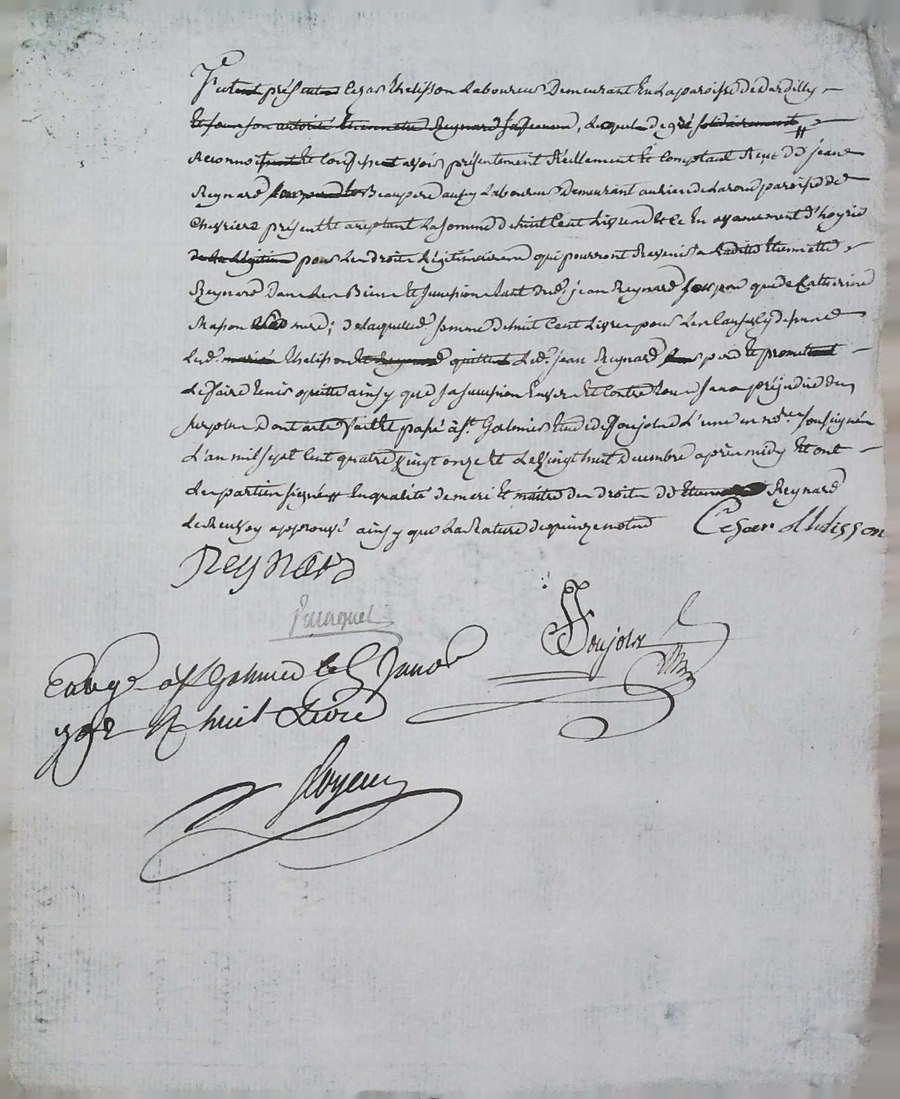 Fut présent Cezar Thelisson Laboureur Demeurant En La paroisse de Dardilly
Et sous son autorité Etiennette Reynard sa femme, Lequel De gré solidairement
Reconnoit Et Confesse avoir présentement Réellement Et Comptant Reçu De jean
Reynard son Beaupere aussy Laboureur Demeurant au lieu de paroisse de
Chevrieres présent Et aceptant La somme de huit Cent Livres Et Ce En avancement d'hoyrie
de sa Légitime pour Les Droits Légitimaires qui pourront Revenir a Ladite Etiennette
Reynard Dans Les Biens Et Succession tant dud. jean Reynard son pere que de Catherine
Mason sa mere; de laquelle somme de huit Cent Livres pour Les Causes Cy dessus
Led. marié Thelisson Et Reynard quittent Led. jean Reynard pere Et promettent
Le faire tenir quitte ainsy que sa succession Envers Et Contre tous sans préjudice du
surplus dont acte fait Et passé à St. Galmier Etude de Soujolon L'un des no.res soussignés
L'an mil sept Cent quatre vingt onze Et Le vingt huit Decembre après midy Et ont
Les parties signé En qualité de mari Et maitre des droits de Etiennette Reynard
Le Renvoy approuvé ainsy que La Rature de quinze mots Cesar thelisson
Reynard
Soujolon
Enreg. a St Galmier le 5 Janv
1792 R huit Livres